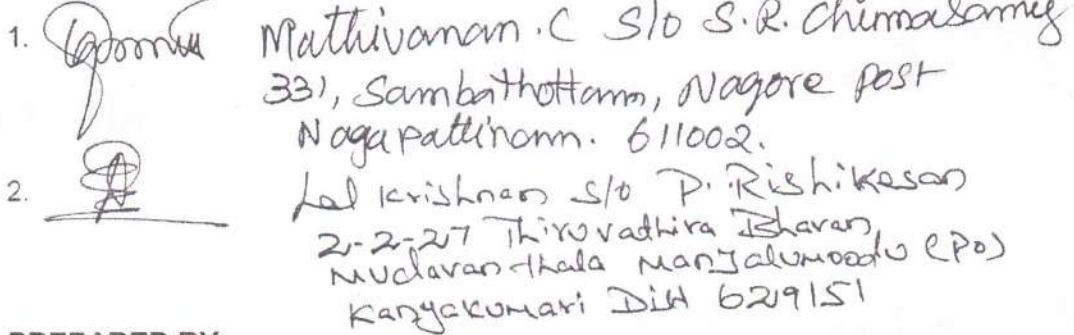 1. Mathivanan.C S/o S.R. Chinnasamy
331, Sambathottam, Nagore Post
Nagapattinam. 611002.
2. Lal Krishnan S/o P. Rishikesan
2-2-27 Thiruvathira Bhavan,
Mudavanthala Manjalumoodu (PO)
Kanyakumari Dist 629151
PREPARED BY